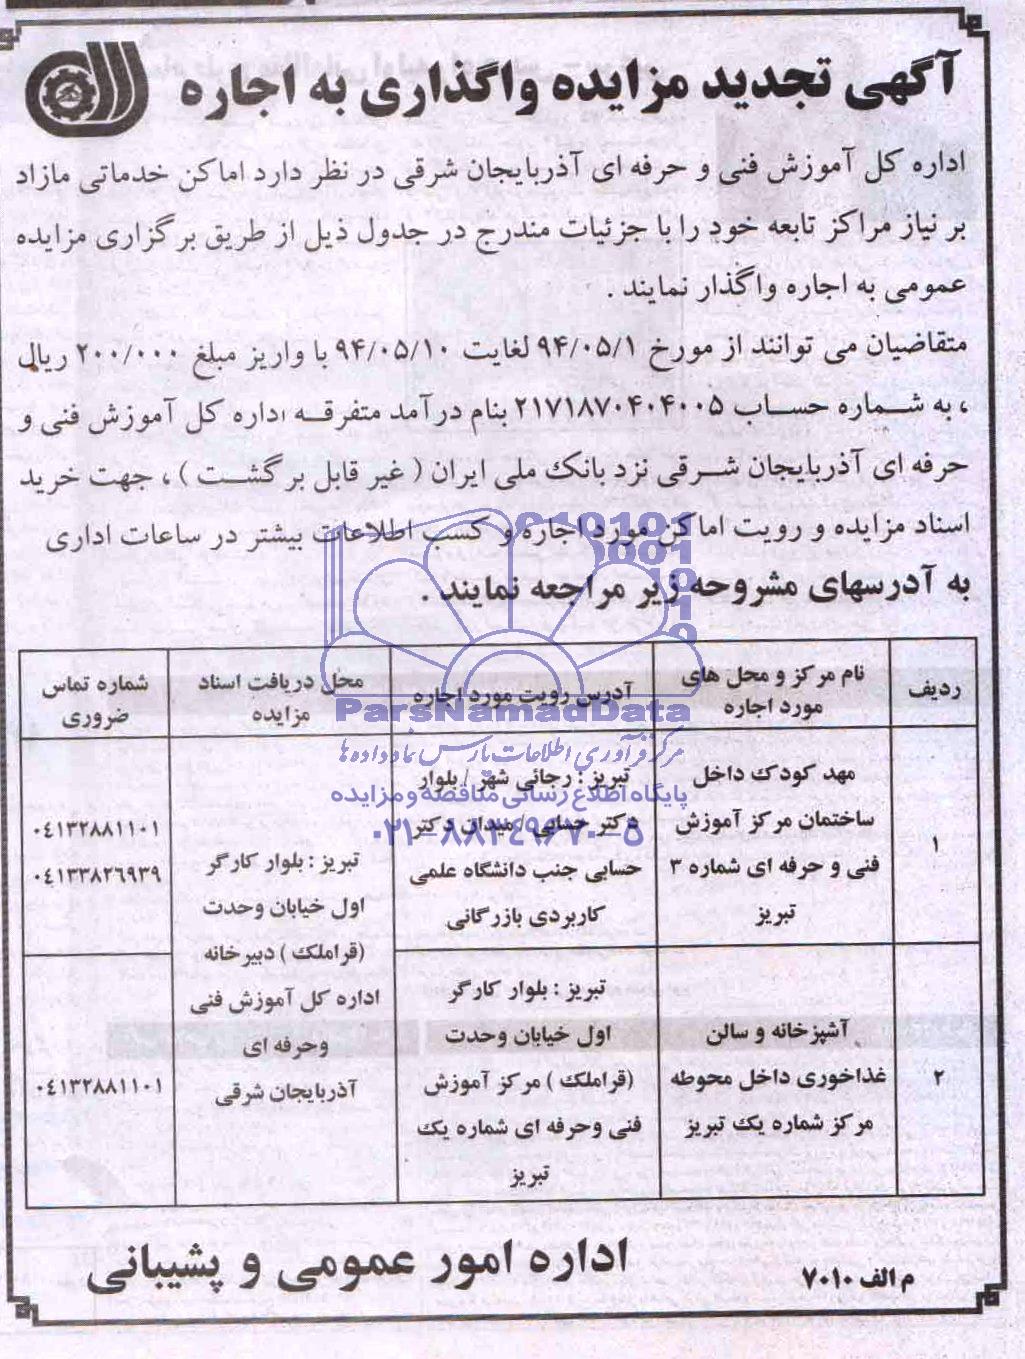 آگهی تجدید مزایده واگذاری به اجاره
اداره کل آموزش فنی و حرفه ای آذربایجان شرقی در نظر دارد اماکن خدماتی مازاد
بر نیاز مراکز تابعه خود را با جزئیات مندرج در جدول ذیل از طریق برگزاری مزایده
عمومی به اجاره واگذار نمایند .
متقاضیان می توانند از مورخ ۹۴/۰۵/۱ لغایت ۹۴/۰۵/۱۰ با واریز مبلغ ۲۰۰/۰۰۰ ریال
، به شماره حساب ۲۱۷۱۸۷۰۴۰۴۰۰۵ بنام درآمد متفرقه اداره کل آموزش فنی و
حرفه ای آذربایجان شرقی نزد بانک ملی ایران ( غیر قابل برگشت ) ، جهت خرید
اسناد مزایده و رویت اماکن مورد اجاره و کسب اطلاعات بیشتر در ساعات اداری
به آدرسهای مشروحه زیر مراجعه نمایند .
ردیف
نام مرکز و محل های
مورد اجاره
آدرس رویت مورد اجاره
محل دریافت اسناد
مزایده
شماره تماس
ضروری
۱
مهد کودک داخل
ساختمان مرکز آموزش
فنی و حرفه ای شماره ۳
تبریز
تبریز : رجائی شهر / بلوار
دکتر حسابی / میدان دکتر
حسابی جنب دانشگاه علمی
کاربردی بازرگانی
تبریز : بلوار کارگر
اول خیابان وحدت
(قراملک ) دبیرخانه
اداره کل آموزش فنی
وحرفه ای
آذربایجان شرقی
۰٤۱۳۲۸۸۱۱۰۱
۰٤۱۳۳۸۲٦۹۳۹
۲
آشپزخانه و سالن
غذاخوری داخل محوطه
مرکز شماره یک تبریز
تبریز : بلوار کارگر
اول خیابان وحدت
(قراملک ) مرکز آموزش
فنی وحرفه ای شماره یک
تبریز
۰٤۱۳۲۸۸۱۱۰۱
اداره امور عمومی و پشیبانی
م الف ۷۰۱۰
ParsNamadData
مرکز فرآوری اطلاعات پارس نماد داده ها
پایگاه اطلاع رسانی مناقصه و مزایده
۰۲۱-۸۸۳۴۹۶۷۰-۵